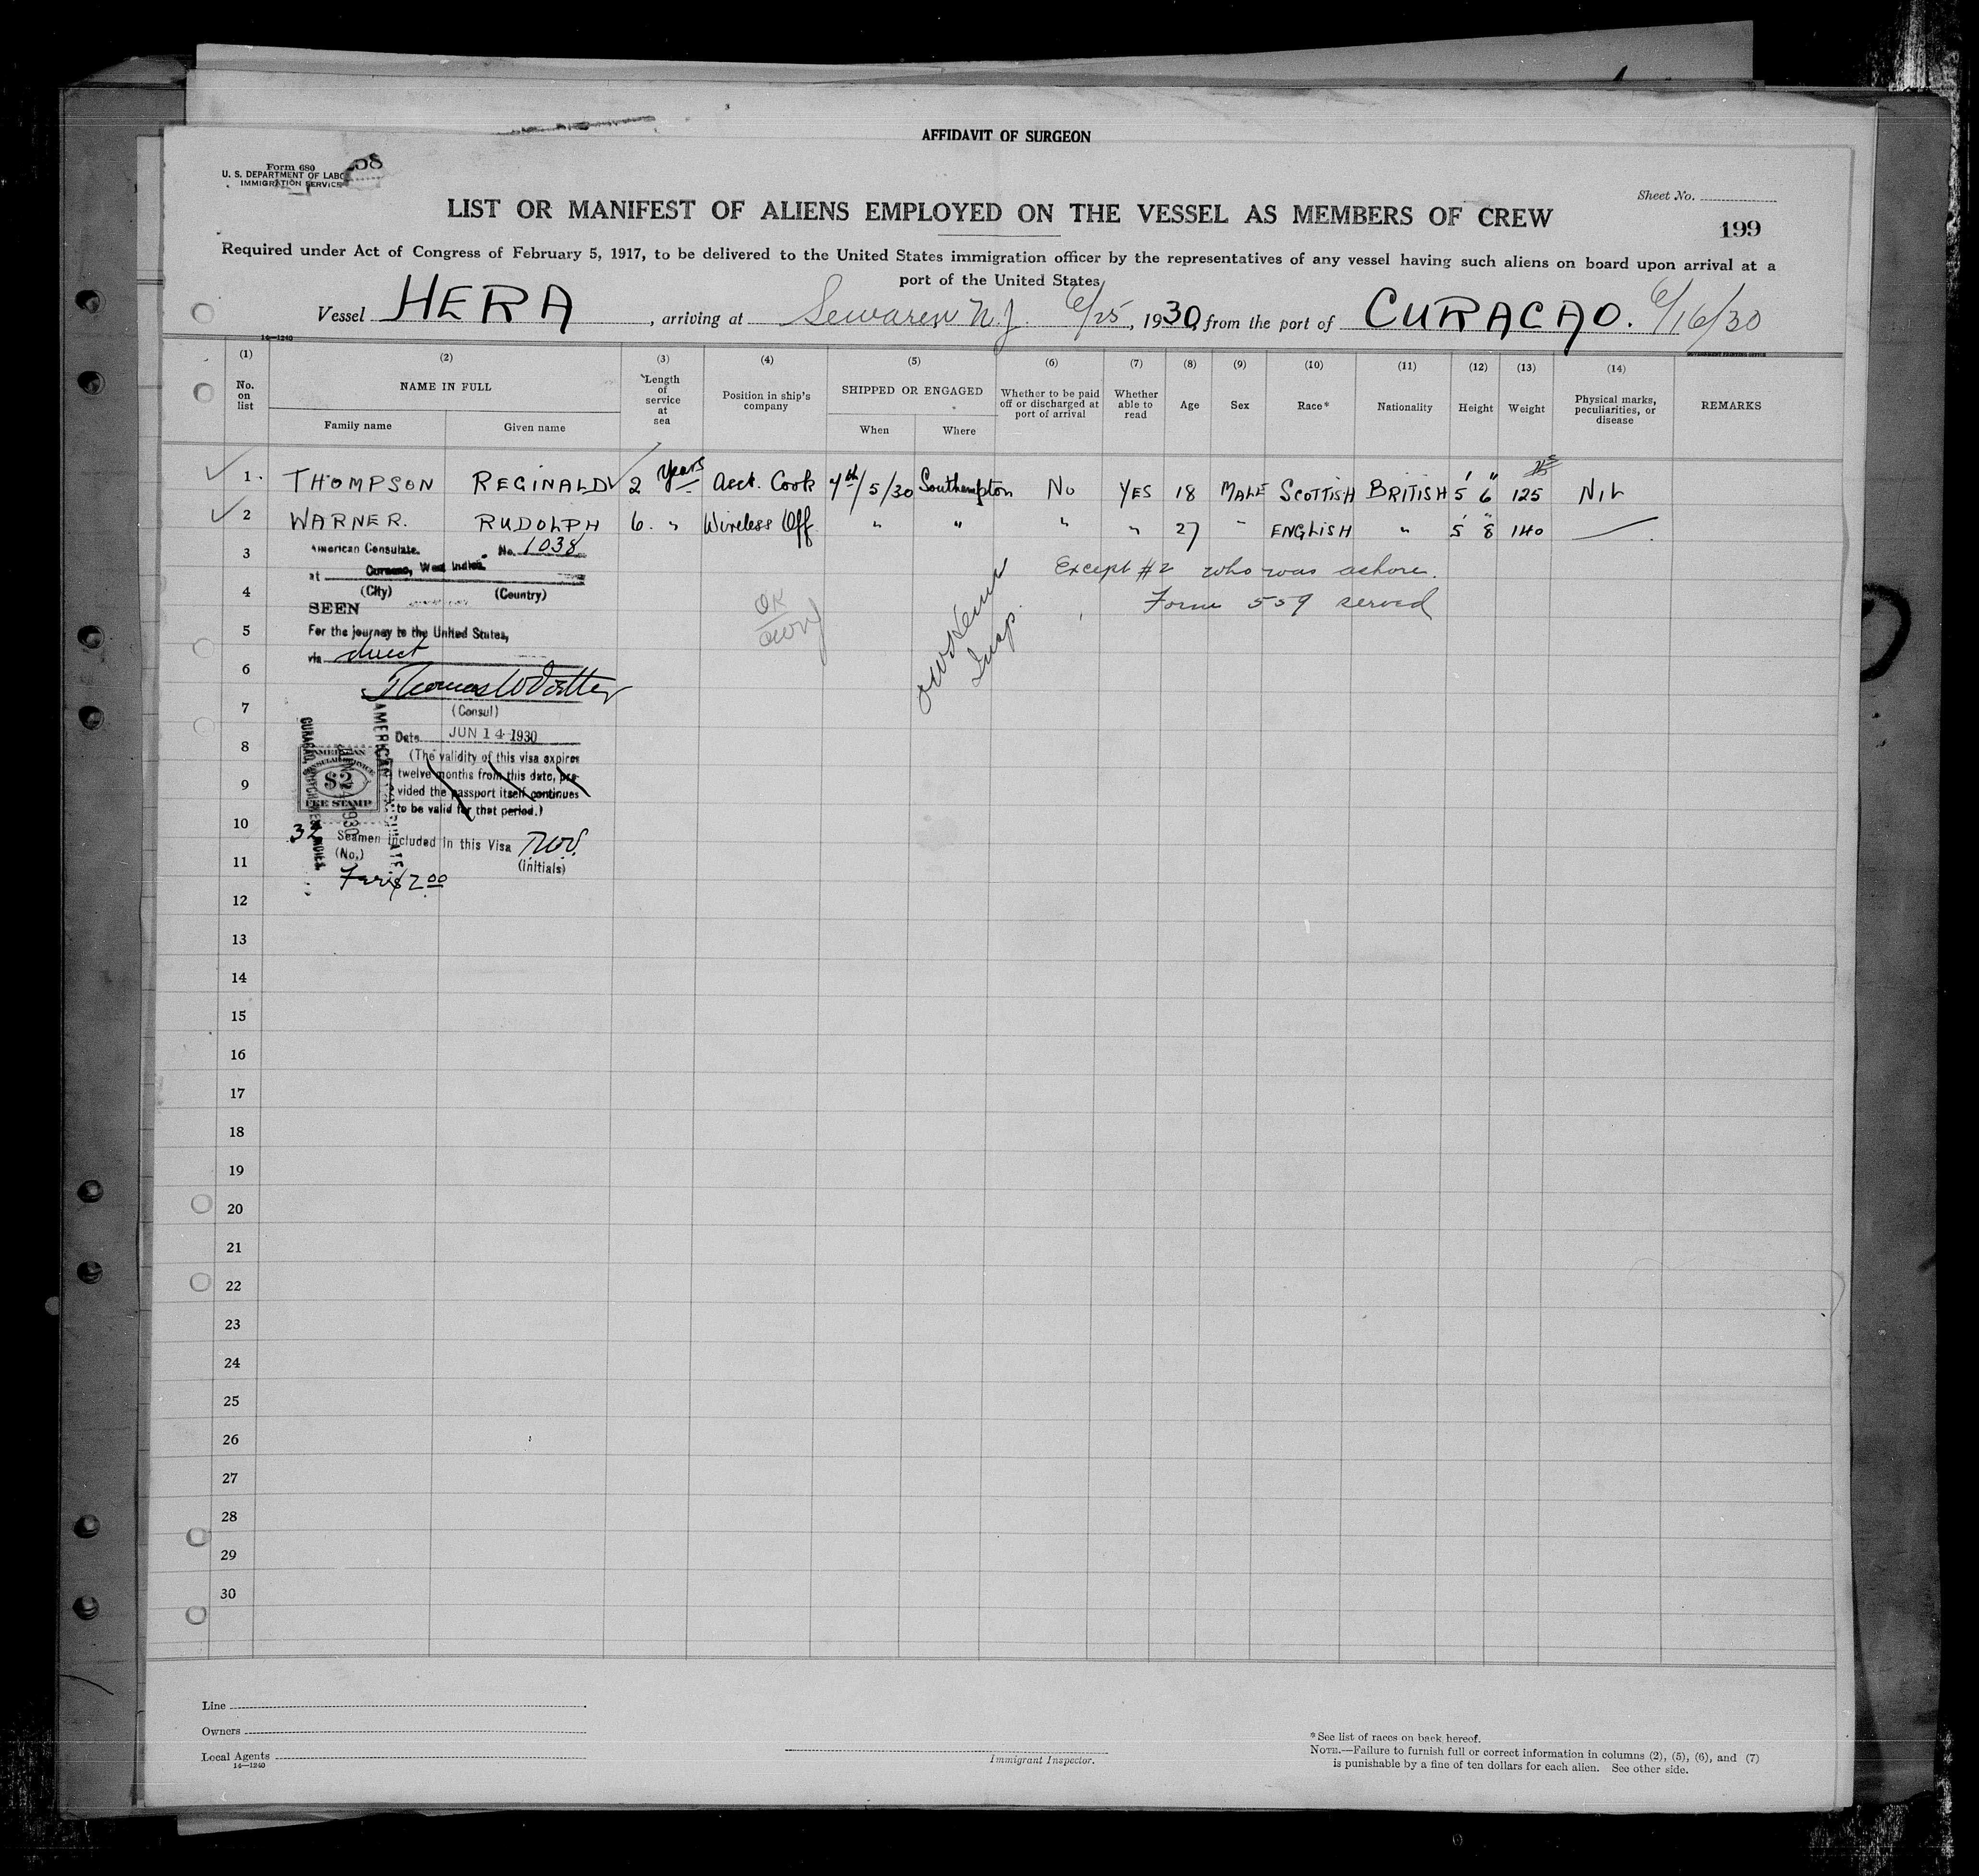 AFFIDAVIT OF SURGEON
Form 680
U. S. DEPARTMENT OF LABOR
IMMIGRATION SERVICE
Sheet No.
199
LIST OR MANIFEST OF ALIENS EMPLOYED ON THE VESSEL AS MEMBERS OF CREW
Required under Act of Congress of February 5, 1917, to be delivered to the United States immigration officer by the representatives of any vessel having such aliens on board upon arrival at a
port of the United States
Vessel HERA, arriving at Sewaren N.J. 6/25, 1930, from the port of CURACAO. 6/16/30
14—1240
GOVERNMENT PRINTING OFFICE
(1) (2) (3) (4) (5) (6) (7) (8) (9) (10) (11) (12) (13) (14)
No. on list
NAME IN FULL
Family name
Given name
Length of service at sea
Position in ship's company
SHIPPED OR ENGAGED
When
Where
Whether to be paid off or discharged at port of arrival
Whether able to read
Age
Sex
Race*
Nationality
Height
Weight
Physical marks, peculiarities, or disease
REMARKS
1. THOMPSON REGINALD 2 years Asst. Cook 4th/5/30 Southampton No YES 18 MALE SCOTTISH BRITISH 5' 6" 125 NIL
2 WARNER. RUDOLPH 6. " Wireless Off " " " " 27 " ENGLISH " 5' 8" 140 —
3
American Consulate. No. 1038
at Curacao, West Indies.
(City) (Country)
4
SEEN
5
For the journey to the United States,
via direct
6
7
(Consul)
8
Date JUN 14 1930
(The validity of this visa expires
twelve months from this date, pro-
9
vided the passport itself continues
to be valid for that period.)
AMERICAN
CONSULAR SERVICE
$2
FEE STAMP
AMERICAN CONSULATE
CURACAO, DUTCH WEST INDIES
10
32 Seamen included in this Visa TWV.
(No.) (Initials)
11
$2.00
Except #2 who was ashore.
Form 559 served
OK
Insp.
12
13
14
15
16
17
18
19
20
21
22
23
24
25
26
27
28
29
30
Line
Owners
Local Agents
14—1240
Immigrant Inspector.
*See list of races on back hereof.
NOTE.—Failure to furnish full or correct information in columns (2), (5), (6), and (7)
is punishable by a fine of ten dollars for each alien. See other side.